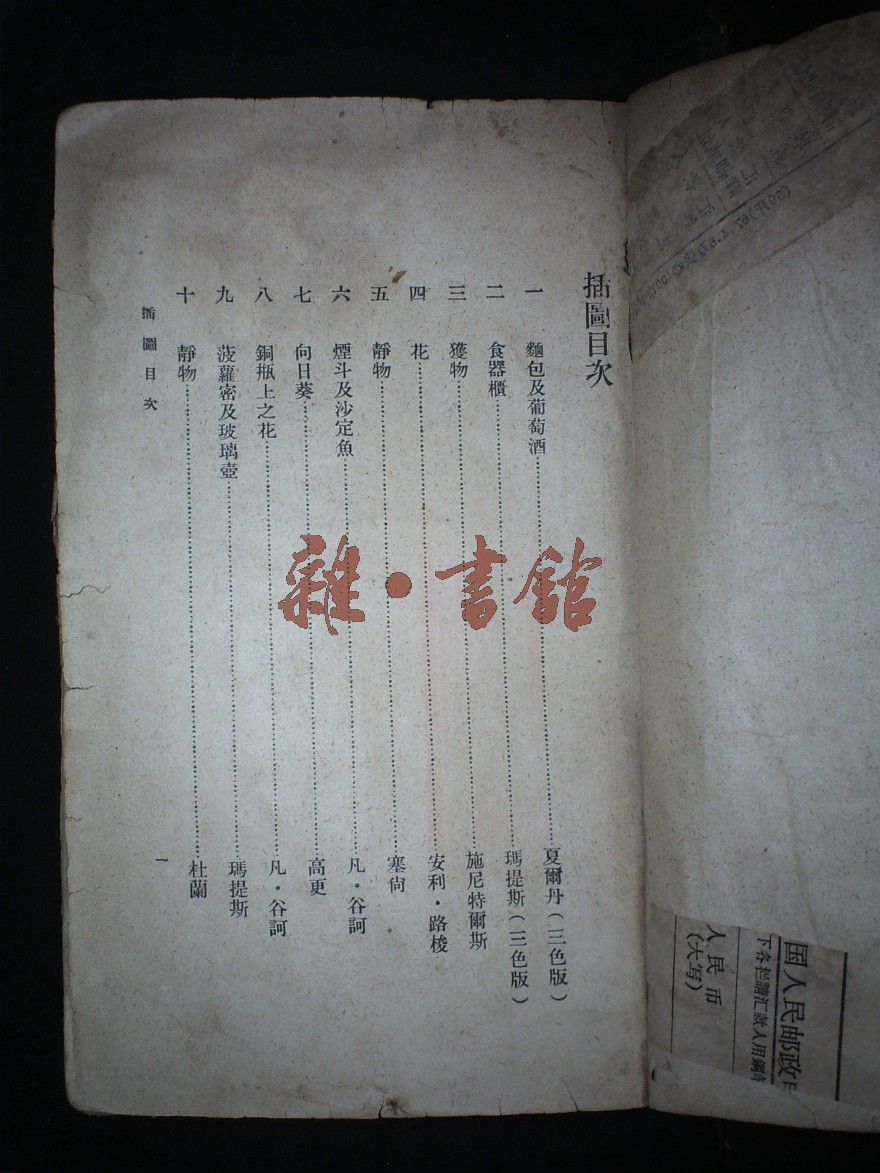 插圖目次
一 麵包及葡萄酒……夏爾丹(三色版)
二 食器櫃……瑪提斯(三色版)
三 獲物……施尼特爾斯
四 花……安利・路梭
五 靜物……塞尙
六 煙斗及沙定魚……凡・谷訶
七 向日葵……高更
八 銅瓶上之花……凡・谷訶
九 菠蘿密及玻璃壺……瑪提斯
十 靜物……杜蘭
插圖目次
一
雜・書館
国人民邮政
下各栏請汇款人用鋼
人民币
(大写)